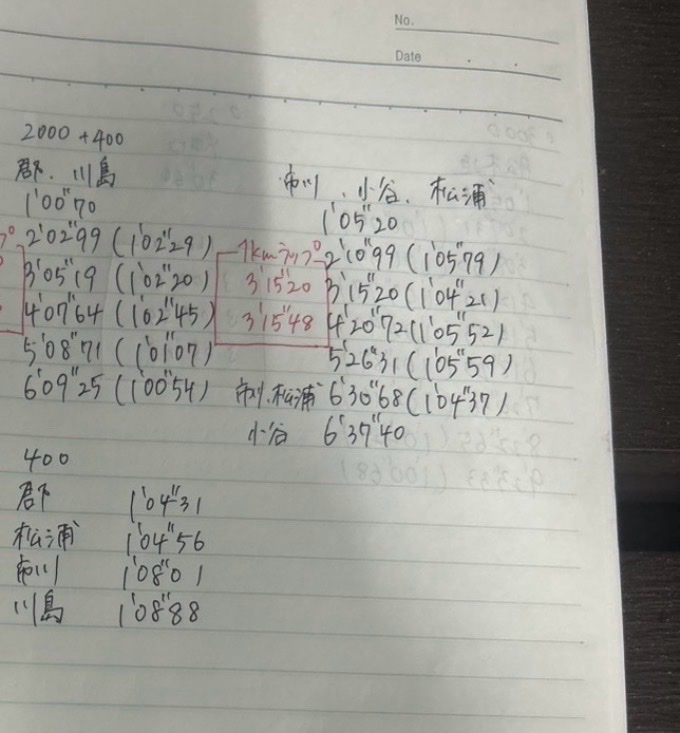 No.
Date
2000 + 400
郡、川島
1'00"70
2'02"99 (1'02"29)
3'05"19 (1'02"20)
4'07"64 (1'02"45)
5'08"71 (1'01"07)
6'09"25 (1'00"54)
市川、小谷、松浦
1'05"20
1kmラップ 2'10"99 (1'05"79)
3'15"20 3'15"20 (1'04"21)
3'15"48 4'20"72 (1'05"52)
5'26"31 (1'05"59)
市川、松浦 6'30"68 (1'04"37)
小谷 6'37"40
400
郡 1'04"31
松浦 1'04"56
市川 1'08"01
川島 1'08"88